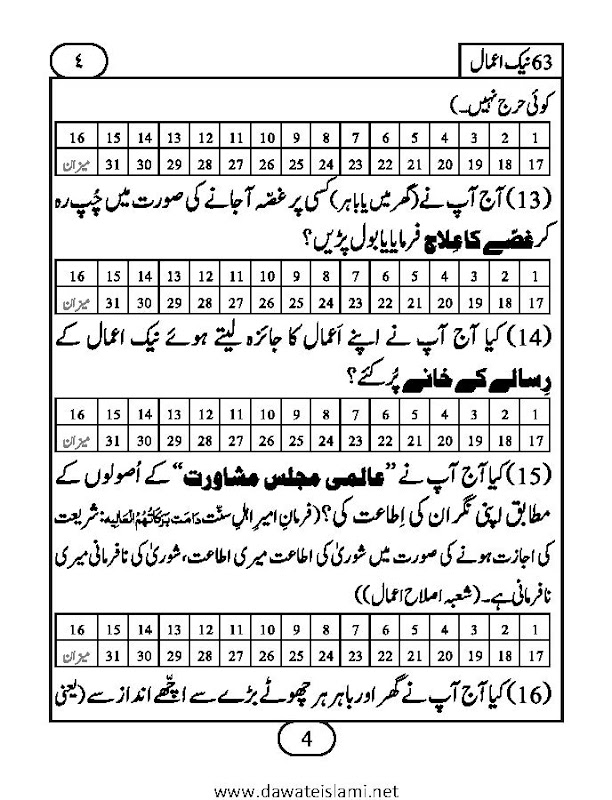 63 نیک اعمال
٤
کوئی حرج نہیں۔)
1 2 3 4 5 6 7 8 9 10 11 12 13 14 15 16
17 18 19 20 21 22 23 24 25 26 27 28 29 30 31 میزان
(13) آج آپ نے (گھر میں یا باہر) کسی پر غصّہ آجانے کی صورت میں چُپ رہ
کر غصّے کا عِلاج فرمایا یا بول پڑیں؟
1 2 3 4 5 6 7 8 9 10 11 12 13 14 15 16
17 18 19 20 21 22 23 24 25 26 27 28 29 30 31 میزان
(14) کیا آج آپ نے اپنے اَعمال کا جائزہ لیتے ہوئے نیک اعمال کے
رِسالے کے خانے پُر کئے؟
1 2 3 4 5 6 7 8 9 10 11 12 13 14 15 16
17 18 19 20 21 22 23 24 25 26 27 28 29 30 31 میزان
(15) کیا آج آپ نے ”عالمی مجلس مشاورت“ کے اُصولوں کے
مطابق اپنی نگران کی اِطاعت کی؟ (فرمانِ امیرِ اہلِ سنّت دَامَتْ بَرَكَاتُهُمُ الْعَالِيَه: شریعت
کی اجازت ہونے کی صورت میں شوریٰ کی اطاعت میری اطاعت، شوریٰ کی نافرمانی میری
نافرمانی ہے۔ (شعبہ اصلاحِ اعمال))
1 2 3 4 5 6 7 8 9 10 11 12 13 14 15 16
17 18 19 20 21 22 23 24 25 26 27 28 29 30 31 میزان
(16) کیا آج آپ نے گھر اور باہر ہر چھوٹے بڑے سے اچّھے انداز سے (یعنی
4
www.dawateislami.net